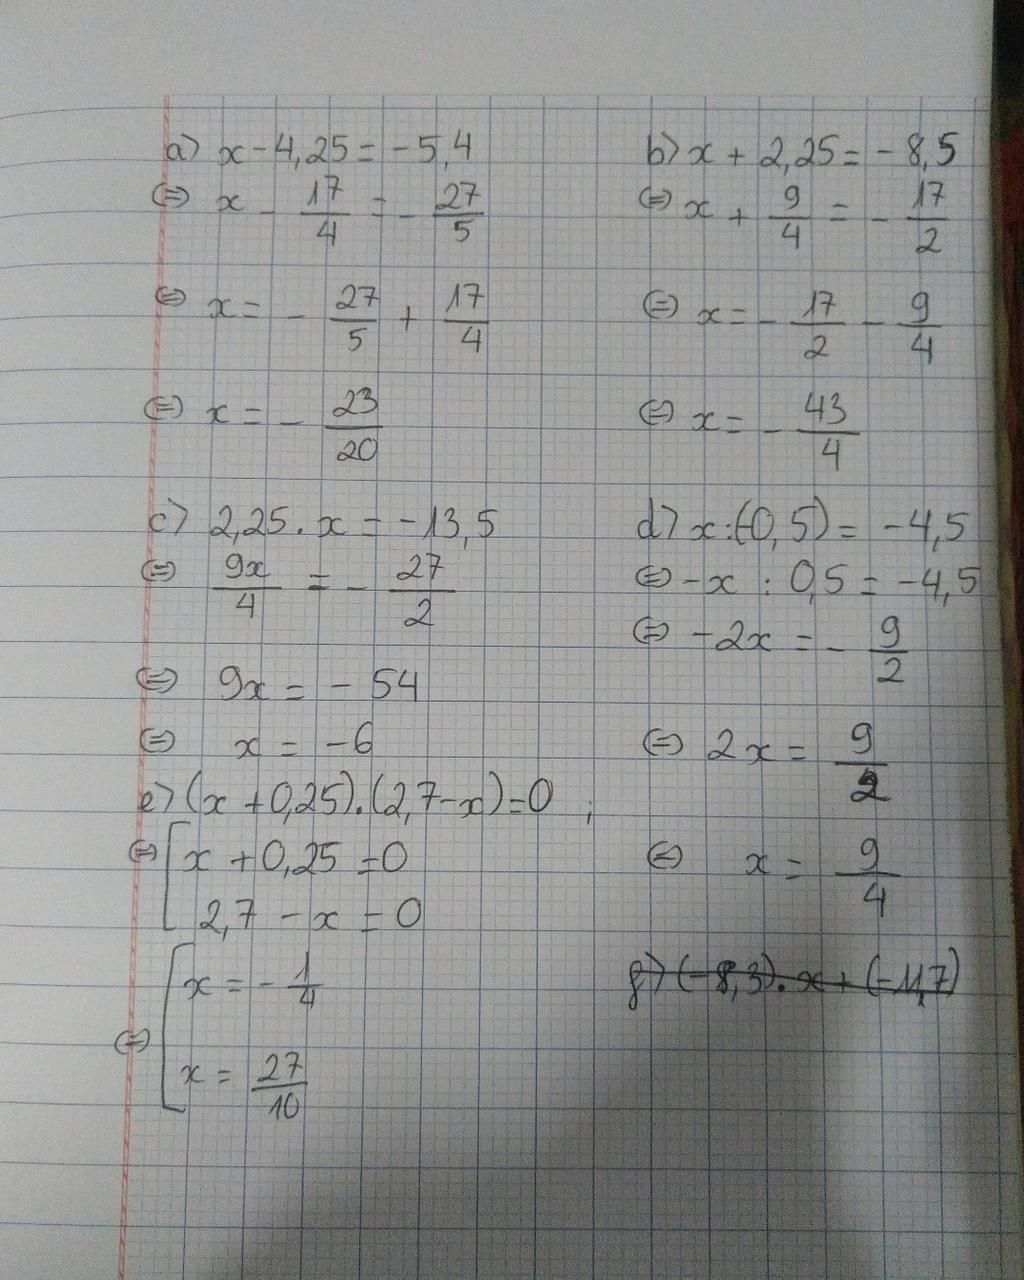 a) x - 4,25 = -5,4
⇔ x - 17/4 = - 27/5
⇔ x = - 27/5 + 17/4
⇔ x = - 23/20
b) x + 2,25 = -8,5
⇔ x + 9/4 = - 17/2
⇔ x = - 17/2 - 9/4
⇔ x = - 43/4
c) 2,25 . x = -13,5
⇔ 9x/4 = - 27/2
⇔ 9x = - 54
⇔ x = -6
d) x : (-0,5) = -4,5
⇔ -x : 0,5 = -4,5
⇔ -2x = - 9/2
⇔ 2x = 9/2
⇔ x = 9/4
e) (x + 0,25).(2,7 - x) = 0 ;
⇔ [ x + 0,25 = 0
2,7 - x = 0
⇔ [ x = - 1/4
x = 27/10
g) (-8,3) . x + (-11,7)